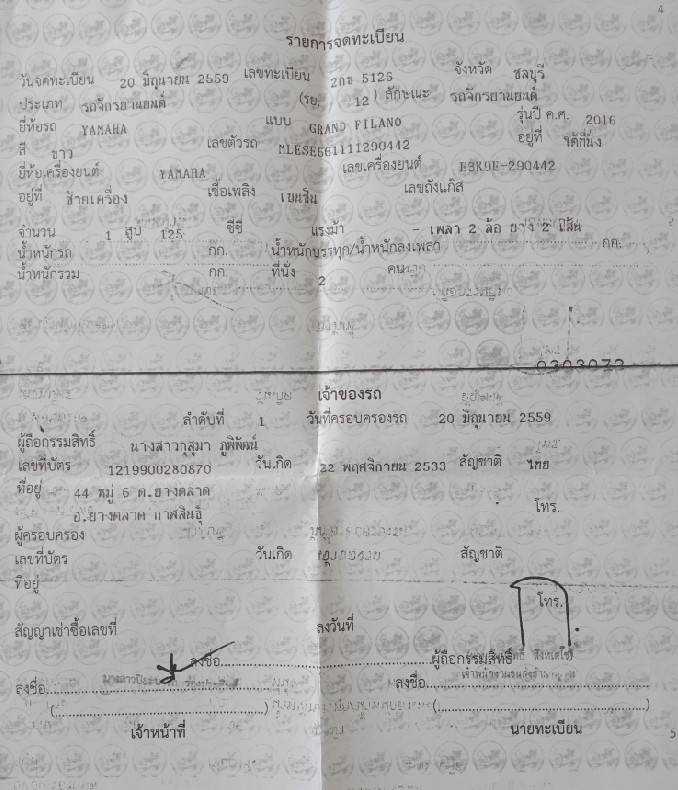 4
รายการจดทะเบียน
วันจดทะเบียน 20 มิถุนายน 2559 เลขทะเบียน 2กธ 5125 จังหวัด ชลบุรี
ประเภท รถจักรยานยนต์ (รย. 12) ลักษณะ รถจักรยานยนต์
ยี่ห้อรถ YAMAHA แบบ GRAND FILANO รุ่นปี ค.ศ. 2016
สี ขาว เลขตัวรถ MLESE661111290442 อยู่ที่ ใต้ที่นั่ง
ยี่ห้อเครื่องยนต์ YAMAHA เลขเครื่องยนต์ E3R9E-290442
อยู่ที่ ซ้ายเครื่อง เชื้อเพลิง เบนซิน เลขถังแก๊ส
จำนวน 1 สูบ 125 ซีซี แรงม้า - เพลา 2 ล้อ ยาง 2 เส้น
น้ำหนักรถ กก. น้ำหนักบรรทุก/น้ำหนักลงเพลา กก.
น้ำหนักรวม กก. ที่นั่ง 2 คน
0303073
เจ้าของรถ
ลำดับที่ 1 วันที่ครอบครองรถ 20 มิถุนายน 2559
ผู้ถือกรรมสิทธิ์ นางสาวกุสุมา ภูพิพัฒน์
เลขที่บัตร 1219900280870 วัน.กิด 22 พฤศจิกายน 2533 สัญชาติ ไทย
ที่อยู่ 44 หมู่ 6 ต.ยางตลาด
อ.ยางตลาด กาฬสินธุ์ โทร.
ผู้ครอบครอง
เลขที่บัตร วัน.กิด สัญชาติ
ที่อยู่
โทร.
สัญญาเช่าซื้อเลขที่ ลงวันที่
ลงชื่อ ผู้ถือกรรมสิทธิ์
ลงชื่อ ลงชื่อ
( ) ( )
เจ้าหน้าที่ นายทะเบียน
5